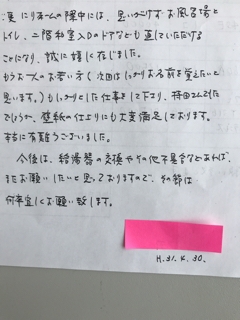 更にリホームの際中には、思いがけずお風呂場と
トイレ、二階和室入口のドアなども直していただける
ことになり、誠に嬉しく存じました。
もうお一人のお若い方(次回はしっかりお名前を覚えたいと
思います。)もしっかりとした仕事をして下さり、
でしょうか、壁紙の仕上りにも大変満足しております。
本当に有難うございました。
今後は、給湯器の交換やその他不具合などあれば、
またお願いしたいと思っておりますので、その節は
何卒宜しくお願い致します。
H.31.4.30.